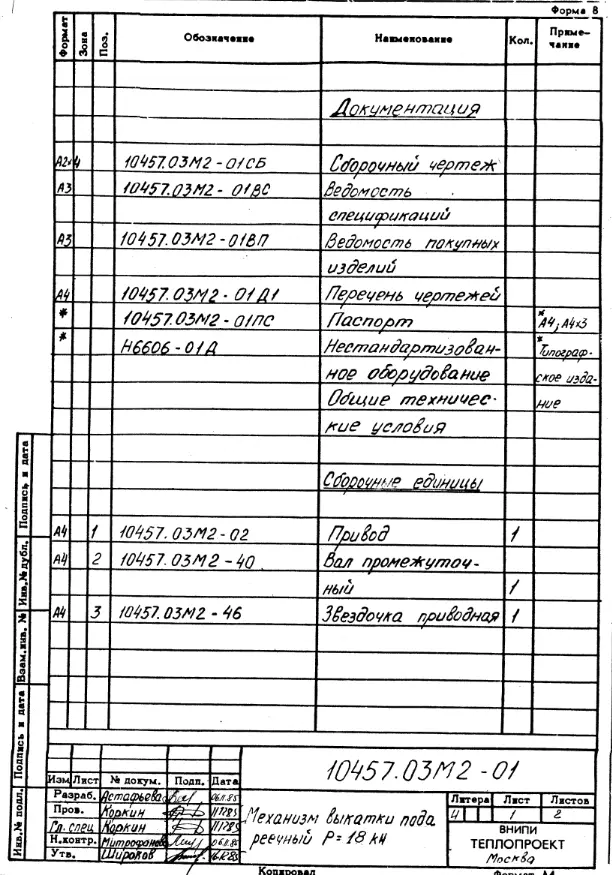 Форма 8
Формат Зона Поз. Обозначение Наименование Кол. Приме-
чание
Документация
А2×4 10457.03М2-01СБ Сборочный чертеж
А3 10457.03М2-01ВС Ведомость
спецификаций
А3 10457.03М2-01ВП Ведомость покупных
изделий
А4 10457.03М2-01Д1 Перечень чертежей
* 10457.03М2-01ПС Паспорт * А4; А4×3
* Н6606-01Д Нестандартизован- * Типограф-
ное оборудование ское изда-
Общие техничес- ние
кие условия
Сборочные единицы
А4 1 10457.03М2-02 Привод 1
А4 2 10457.03М2-40 Вал промежуточ-
ный 1
А4 3 10457.03М2-46 Звездочка приводная 1
Подпись и дата
Инв.№ дубл.
Взам.инв. №
Подпись и дата
Инв.№ подл.
10457.03М2-01
Изм Лист № докум. Подп. Дата
Разраб. Астафьева 06.11.85
Пров. Коркин
Гл. спец Коркин
Н.контр. Митрофанова
Утв. Широков
Механизм выкатки пода
реечный Р=18 кН
Литера Лист Листов
И 1 2
ВНИПИ
ТЕПЛОПРОЕКТ
Москва
Копировал Формат А4